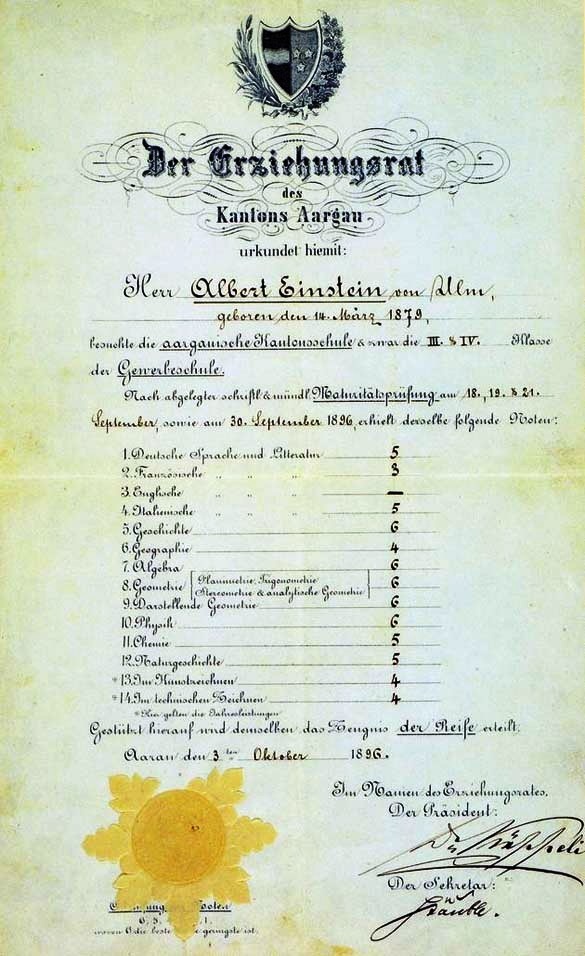 Der Erziehungsrat
des
Kantons Aargau
urkundet hiemit:
Herr Albert Einstein von Ulm,
geboren den 14. März 1879,
besuchte die aargauische Kantonsschule & zwar die III. & IV. Klasse
der Gewerbeschule.
Nach abgelegter schriftl. & mündl. Maturitätsprüfung am 18., 19. & 21.
September, sowie am 30. September 1896, erhielt derselbe folgende Noten:
1. Deutsche Sprache und Litteratur 5
2. Französische „ „ „ 3
3. Englische „ „ „ —
4. Italienische „ „ „ 5
5. Geschichte 6
6. Geographie 4
7. Algebra 6
8. Geometrie [Planimetrie, Trigonometrie
Stereometrie & analytische Geometrie] 6
9. Darstellende Geometrie 6
10. Physik 6
11. Chemie 5
12. Naturgeschichte 5
*13. Im Kunstzeichnen 4
*14. Im technischen Zeichnen 4
*Hier gelten die Jahresleistungen
Gestützt hierauf wird demselben das Zeugnis der Reife erteilt.
Aarau den 3ten Oktober 1896.
Im Namen des Erziehungsrates,
Der Präsident:
Der Sekretär:
Stäuble.
Noten
6. 5. 1.
wovon 6 die beste geringste ist.